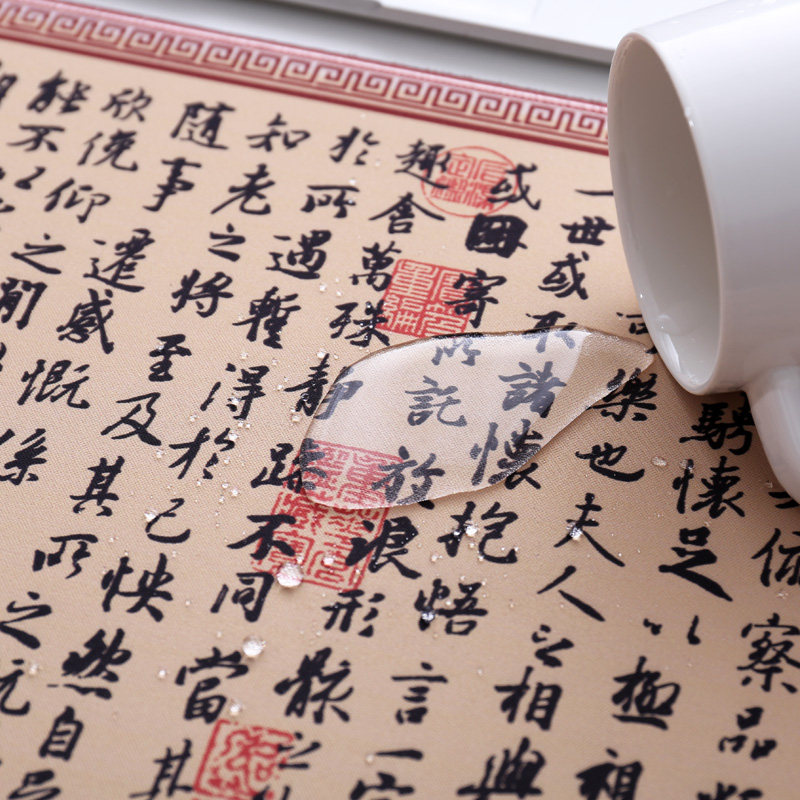 俯察品類
騁懷足以極視
可樂也夫人之相與
一世或取諸懷抱悟言一室
或因寄所託放浪形骸之
趣舍萬殊靜躁不同當其
於所遇暫得於己怏然自足
知老之將至及其所之
隨事遷感慨係
欣俛仰之閒
能不以